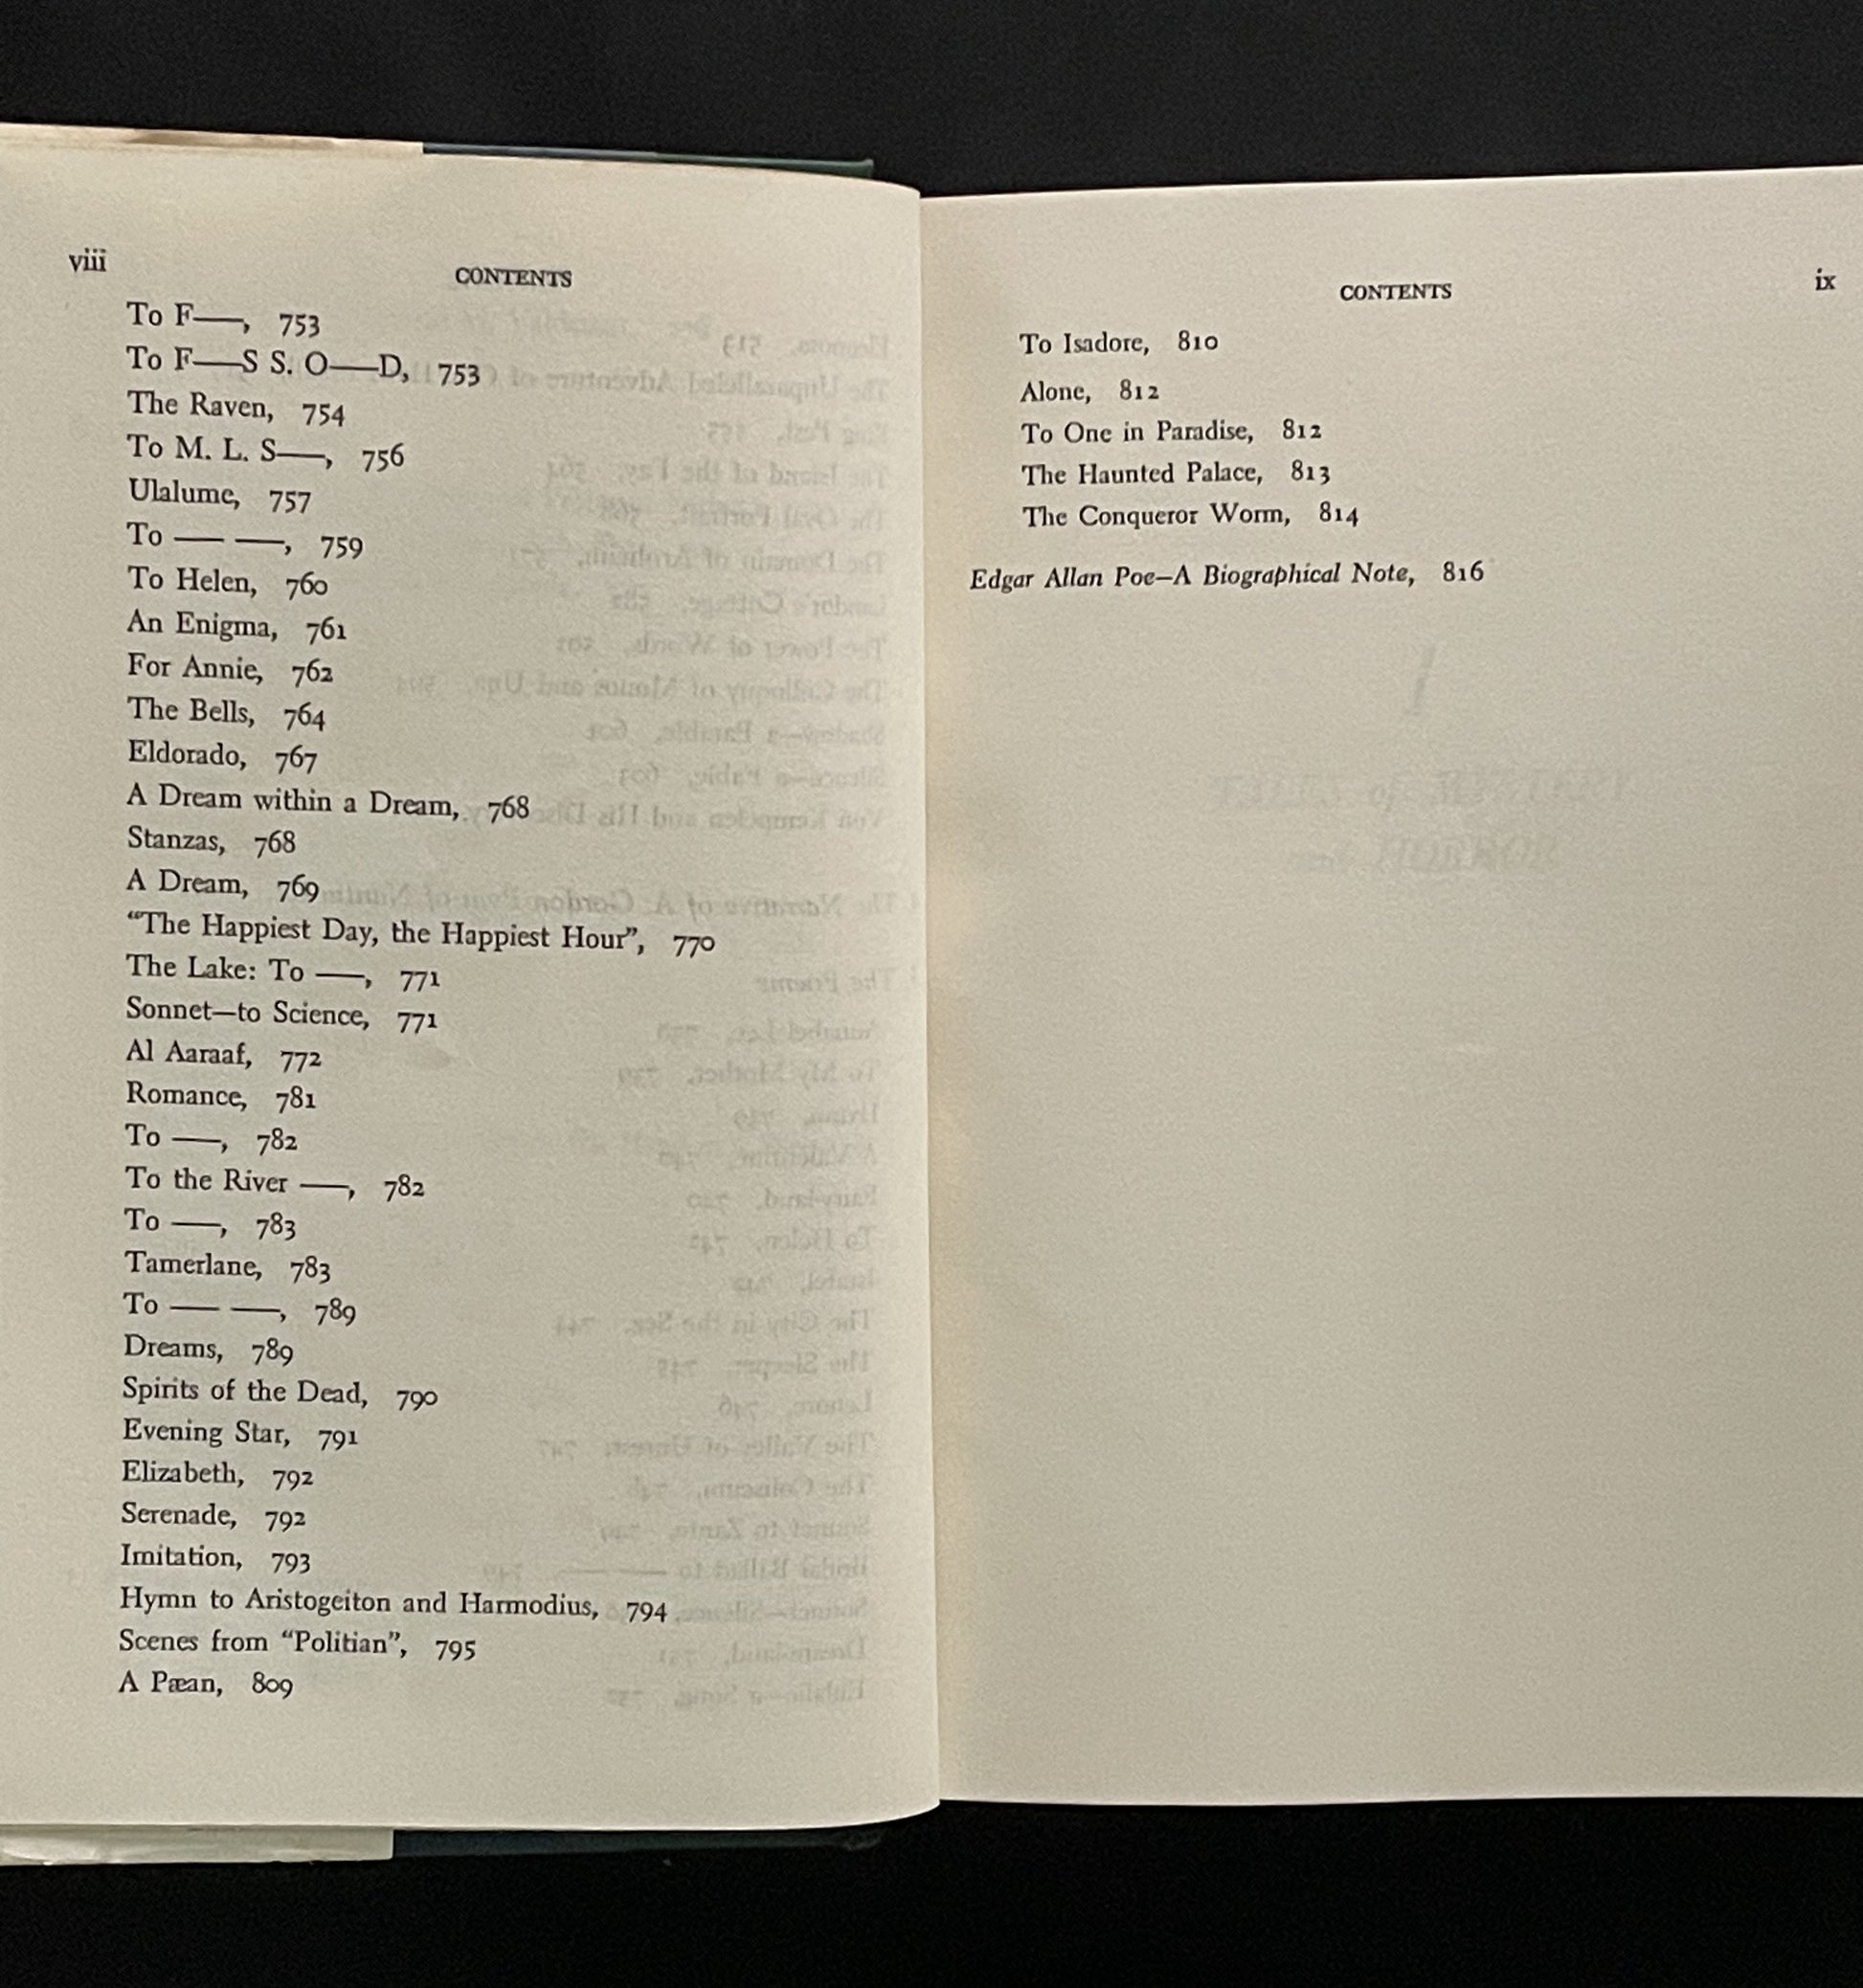 viii
CONTENTS
To F——, 753
To F——S S. O——D, 753
The Raven, 754
To M. L. S——, 756
Ulalume, 757
To —— ——, 759
To Helen, 760
An Enigma, 761
For Annie, 762
The Bells, 764
Eldorado, 767
A Dream within a Dream, 768
Stanzas, 768
A Dream, 769
“The Happiest Day, the Happiest Hour”, 770
The Lake: To ——, 771
Sonnet—to Science, 771
Al Aaraaf, 772
Romance, 781
To ——, 782
To the River ——, 782
To ——, 783
Tamerlane, 783
To —— ——, 789
Dreams, 789
Spirits of the Dead, 790
Evening Star, 791
Elizabeth, 792
Serenade, 792
Imitation, 793
Hymn to Aristogeiton and Harmodius, 794
Scenes from “Politian”, 795
A Pæan, 809
CONTENTS
ix
To Isadore, 810
Alone, 812
To One in Paradise, 812
The Haunted Palace, 813
The Conqueror Worm, 814
Edgar Allan Poe—A Biographical Note, 816